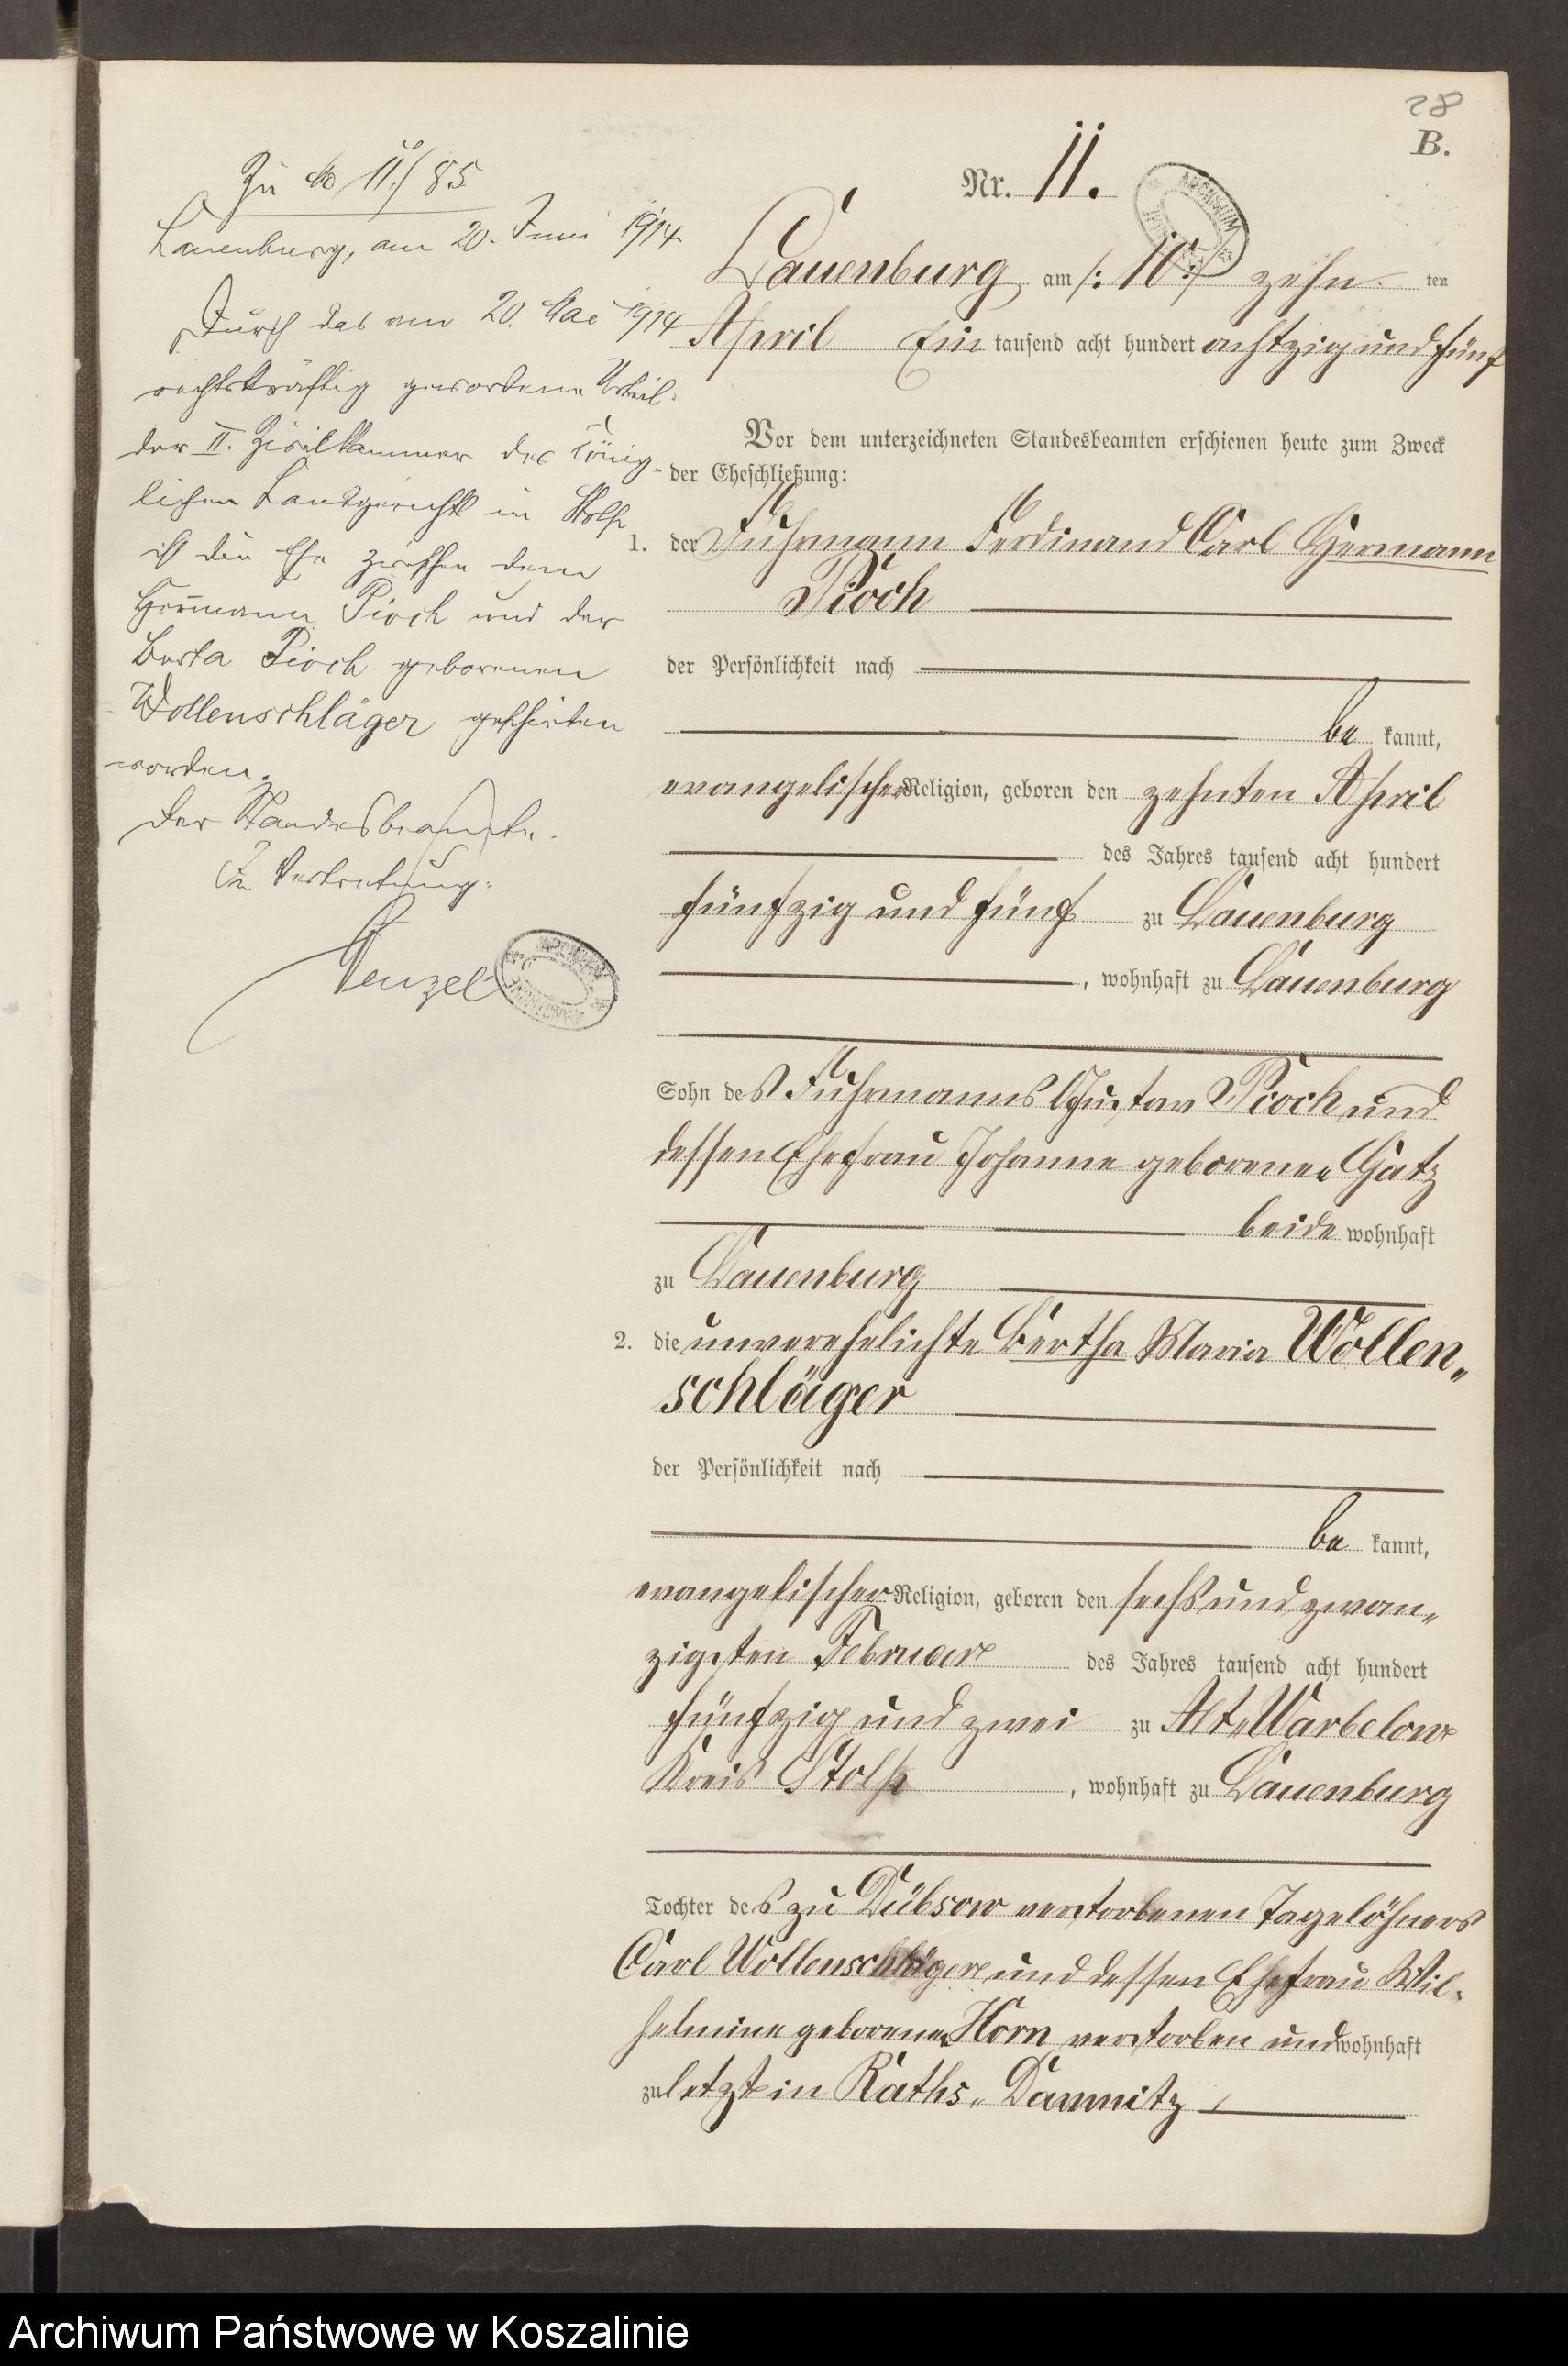 28
B.
Zu No 11./85
Lauenburg, am 20. Juni 1914
Durch das am 20. Mai 1914
rechtskräftig gewordene Urteil
der II. Zivilkammer des König-
lichen Landgerichts in Stolp
ist die Ehe zwischen dem
Hermann Pioch und der
Berta Pioch geborenen
Wollenschläger geschieden
worden.
Der Standesbeamte.
In Vertretung:
Wenzel
Nr. 11.
Lauenburg am /: 10 :/ zehn ten
April Ein tausend acht hundert achtzig und fünf
Vor dem unterzeichneten Standesbeamten erschienen heute zum Zweck
der Eheschließung:
1. der Fuhrmann Ferdinand Carl Hermann
Pioch
der Persönlichkeit nach
be kannt,
evangelischer Religion, geboren den zehnten April
des Jahres tausend acht hundert
fünfzig und fünf zu Lauenburg
, wohnhaft zu Lauenburg
Sohn des Fuhrmanns Gustav Pioch und
dessen Ehefrau Johanne geborenen Gatz
beide wohnhaft
zu Lauenburg
2. die unverehelichte Bertha Maria Wollen„
schläger
der Persönlichkeit nach
be kannt,
evangelischer Religion, geboren den sechs und zwan„
zigsten Februar des Jahres tausend acht hundert
fünfzig und zwei zu Alt„Warbelow
Kreis Stolp , wohnhaft zu Lauenburg
Tochter des zu Dübsow verstorbenen Tagelöhners
Carl Wollenschläger und dessen Ehefrau Wil„
helmine geborenen Horn verstorben und wohnhaft
zuletzt in Raths„Damnitz
Archiwum Państwowe w Koszalinie